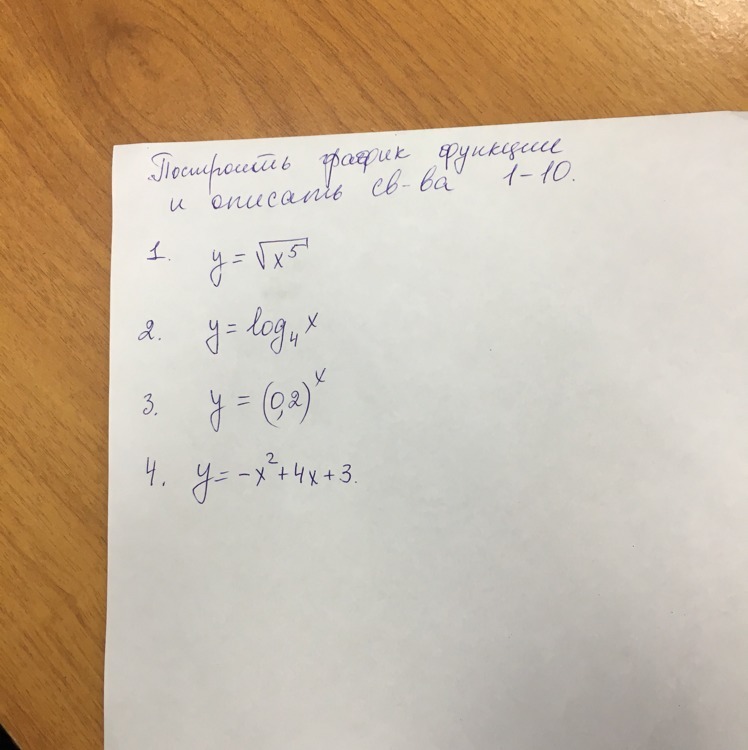 Построить график функции
и описать св-ва 1-10.
1. y = √x⁵
2. y = log₄ x
3. y = (0,2)ˣ
4. y = -x² + 4x + 3.